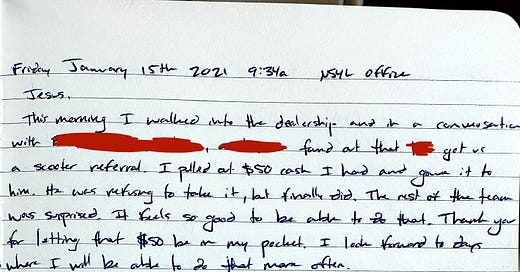 Friday January 15th 2021 9:34a NSYL office
Jesus,
This morning I walked into the dealership and in a conversation
with , found out that got us
a scooter referral. I pulled out $50 cash I had and gave it to
him. He was refusing to take it, but finally did. The rest of the team
was surprised. It feels so good to be able to do that. Thank you
for letting that $50 be in my pocket. I look forward to days
where I will be able to do that more often.